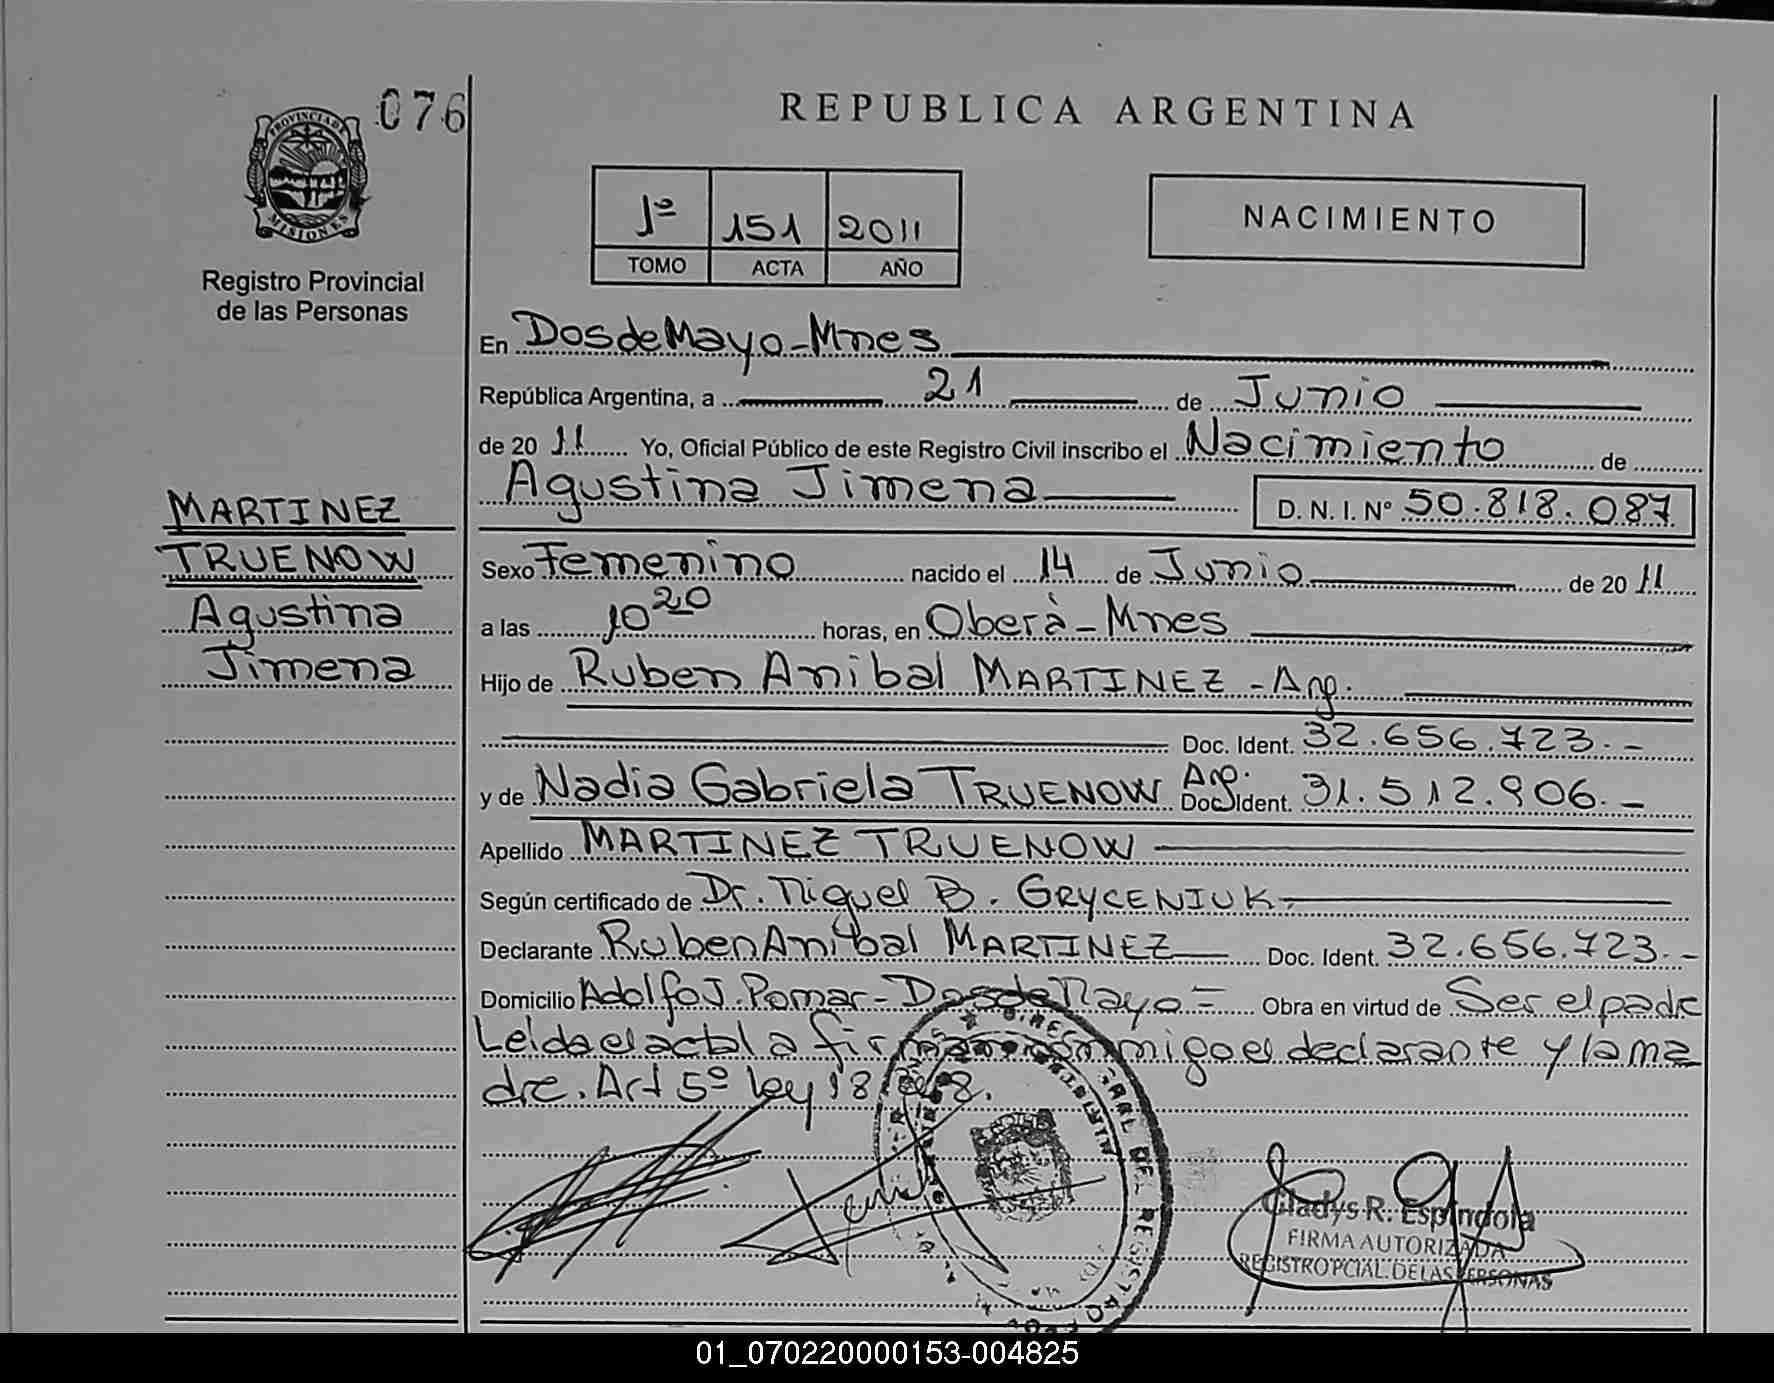 076
PROVINCIA DE
MISIONES
Registro Provincial
de las Personas
REPUBLICA ARGENTINA
1º 151 2011
TOMO ACTA AÑO
NACIMIENTO
En Dos de Mayo - Mnes
República Argentina, a 21 de Junio
de 20 11 Yo, Oficial Público de este Registro Civil inscribo el Nacimiento de
Agustina Jimena D. N. I. Nº 50.818.087
MARTINEZ
TRUENOW
Agustina
Jimena
Sexo Femenino nacido el 14 de Junio de 20 11
a las 10 20 horas, en Oberà - Mnes
Hijo de Ruben Anibal MARTINEZ - Arg.
Doc. Ident. 32.656.723.-
y de Nadia Gabriela TRUENOW Arg. Doc. Ident. 31.512.906.-
Apellido MARTINEZ TRUENOW
Según certificado de Dr. Miguel B. GRYCENIUK.
Declarante Ruben Anibal MARTINEZ Doc. Ident. 32.656.723.-
Domicilio Adolfo J. Pomar - Dos de Mayo = Obra en virtud de Ser el padre
Leida el acta la firman conmigo el declarante y la ma
dre. Art 5º Ley 18
Gladys R. Espindola
FIRMA AUTORIZADA
REGISTRO PCIAL. DE LAS PERSONAS
01_070220000153-004825